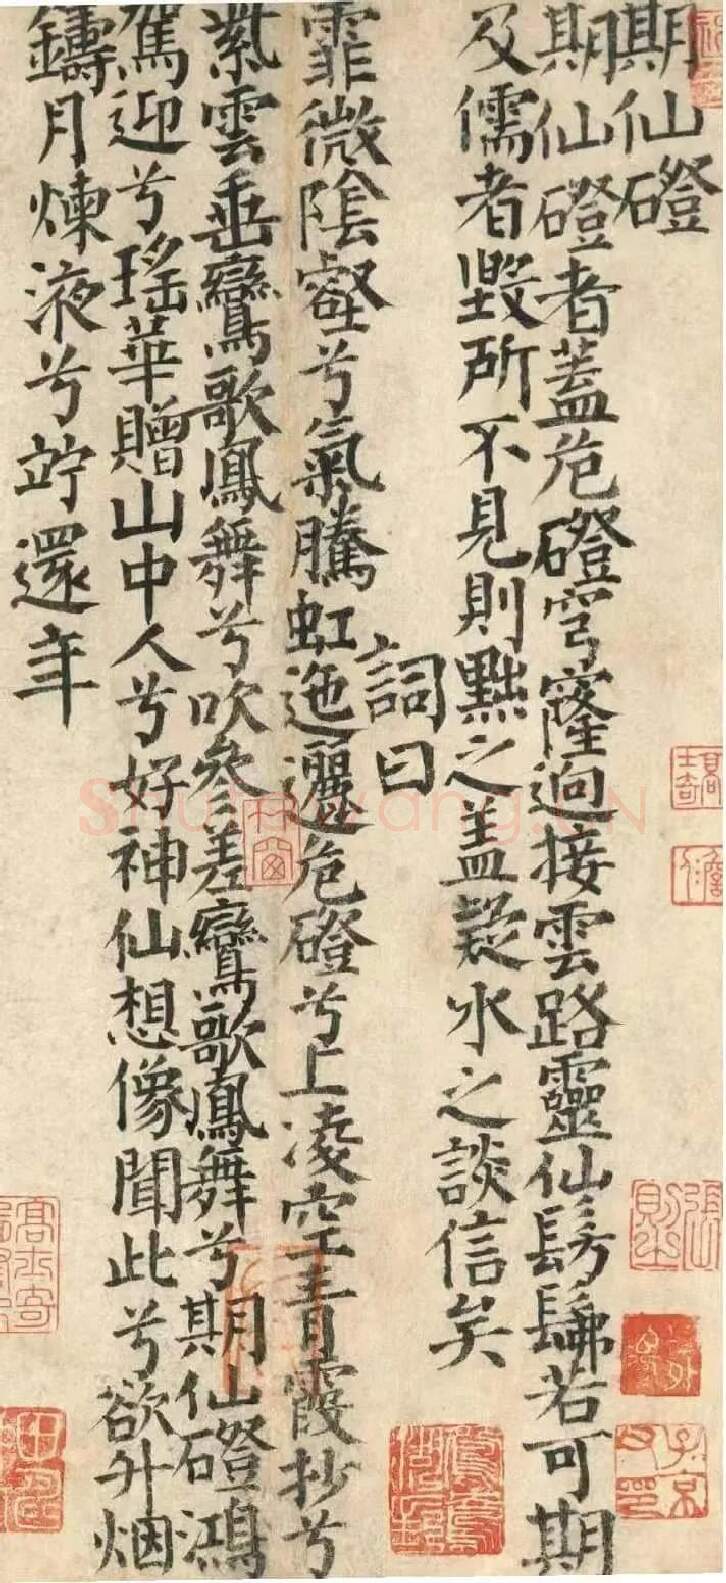 期仙磴
期仙磴者蓋危磴穹窿迥接雲路靈仙髣髴若可期
及儒者毀所不見則黜之蓋疑水之談信矣
詞曰
霏微陰壑兮氣騰虹迤邐危磴兮上凌空青霞抄兮
紫雲垂鸞歌鳳舞兮吹參差鸞歌鳳舞兮期仙磴鴻
駕迎兮瑤華贈山中人兮好神仙想像聞此兮欲升烟
鑄月煉液兮竚還年
ShufaWang.CN